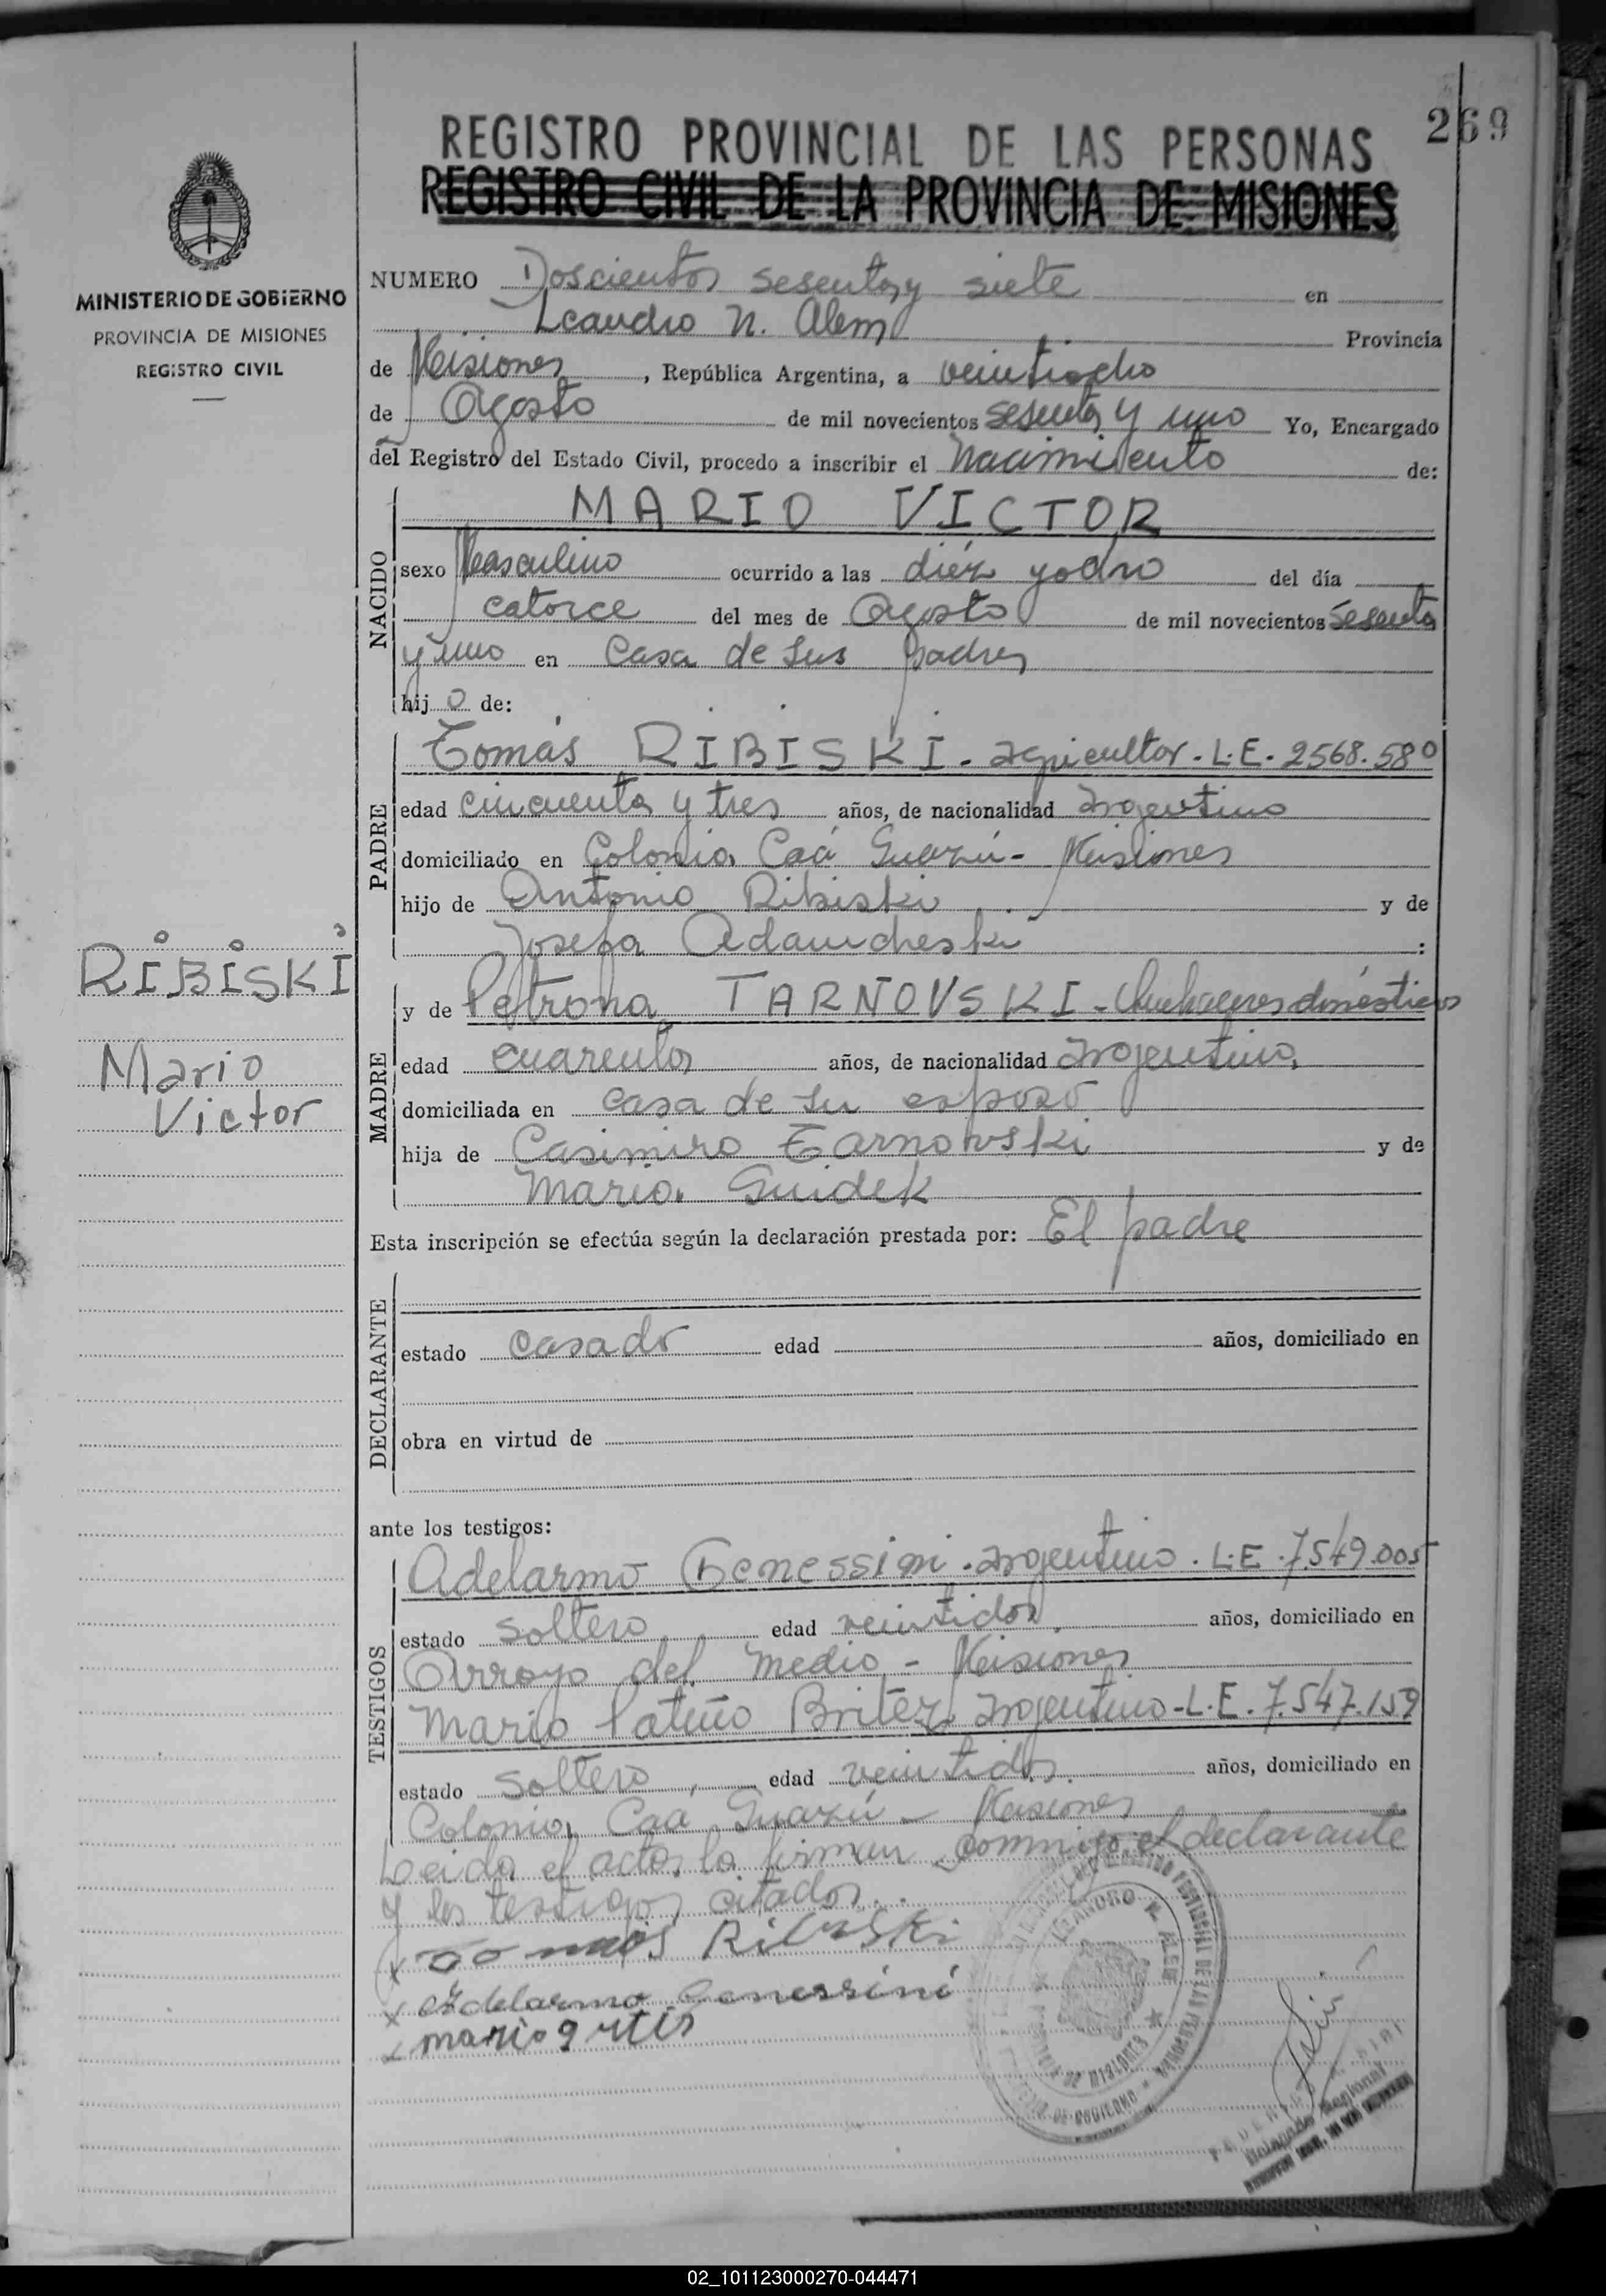 269
REGISTRO PROVINCIAL DE LAS PERSONAS
REGISTRO CIVIL DE LA PROVINCIA DE MISIONES
MINISTERIO DE GOBIERNO
PROVINCIA DE MISIONES
REGISTRO CIVIL
NUMERO Doscientos sesenta y siete en
Leandro N. Alem Provincia
de Misiones, República Argentina, a veintiocho
de Agosto de mil novecientos sesenta y uno Yo, Encargado
del Registro del Estado Civil, procedo a inscribir el Nacimiento de:
NACIDO
MARIO VICTOR
sexo Masculino ocurrido a las diéz y ocho del día
catorce del mes de Agosto de mil novecientos sesenta
y uno en Casa de sus padres
hijo de:
PADRE
Tomás RIBISKI - agricultor - L.E. 2568.580
edad cincuenta y tres años, de nacionalidad argentino
domiciliado en Colonia Caá Guazú - Misiones
hijo de Antonio Ribiski y de
Josefa Adamcheski :
RIBISKI
Mario
Victor
MADRE
y de Petrona TARNOVSKI - Quehaceres domésticos
edad cuarenta años, de nacionalidad argentina
domiciliada en casa de su esposo
hija de Casimiro Tarnowski y de
Maria Guidek
Esta inscripción se efectúa según la declaración prestada por: El padre
DECLARANTE
estado casado edad años, domiciliado en
obra en virtud de
ante los testigos:
TESTIGOS
Adelarmo Genessini - argentino - L.E. 7.549.005
estado soltero edad veintidos años, domiciliado en
Arroyo del Medio - Misiones
Mario Britez argentino - L.E. 7.547.159
estado soltero, edad veintidos años, domiciliado en
Colonia Caá Guazú - Misiones
Leida el acta, la firman conmigo el declarante
y los testigos citados.
x Tomás Ribiski
x Adelarmo Genessini
x mario
LEANDRO N. ALEM
DE MISIONES
Delegado Regional
02_101123000270-044471